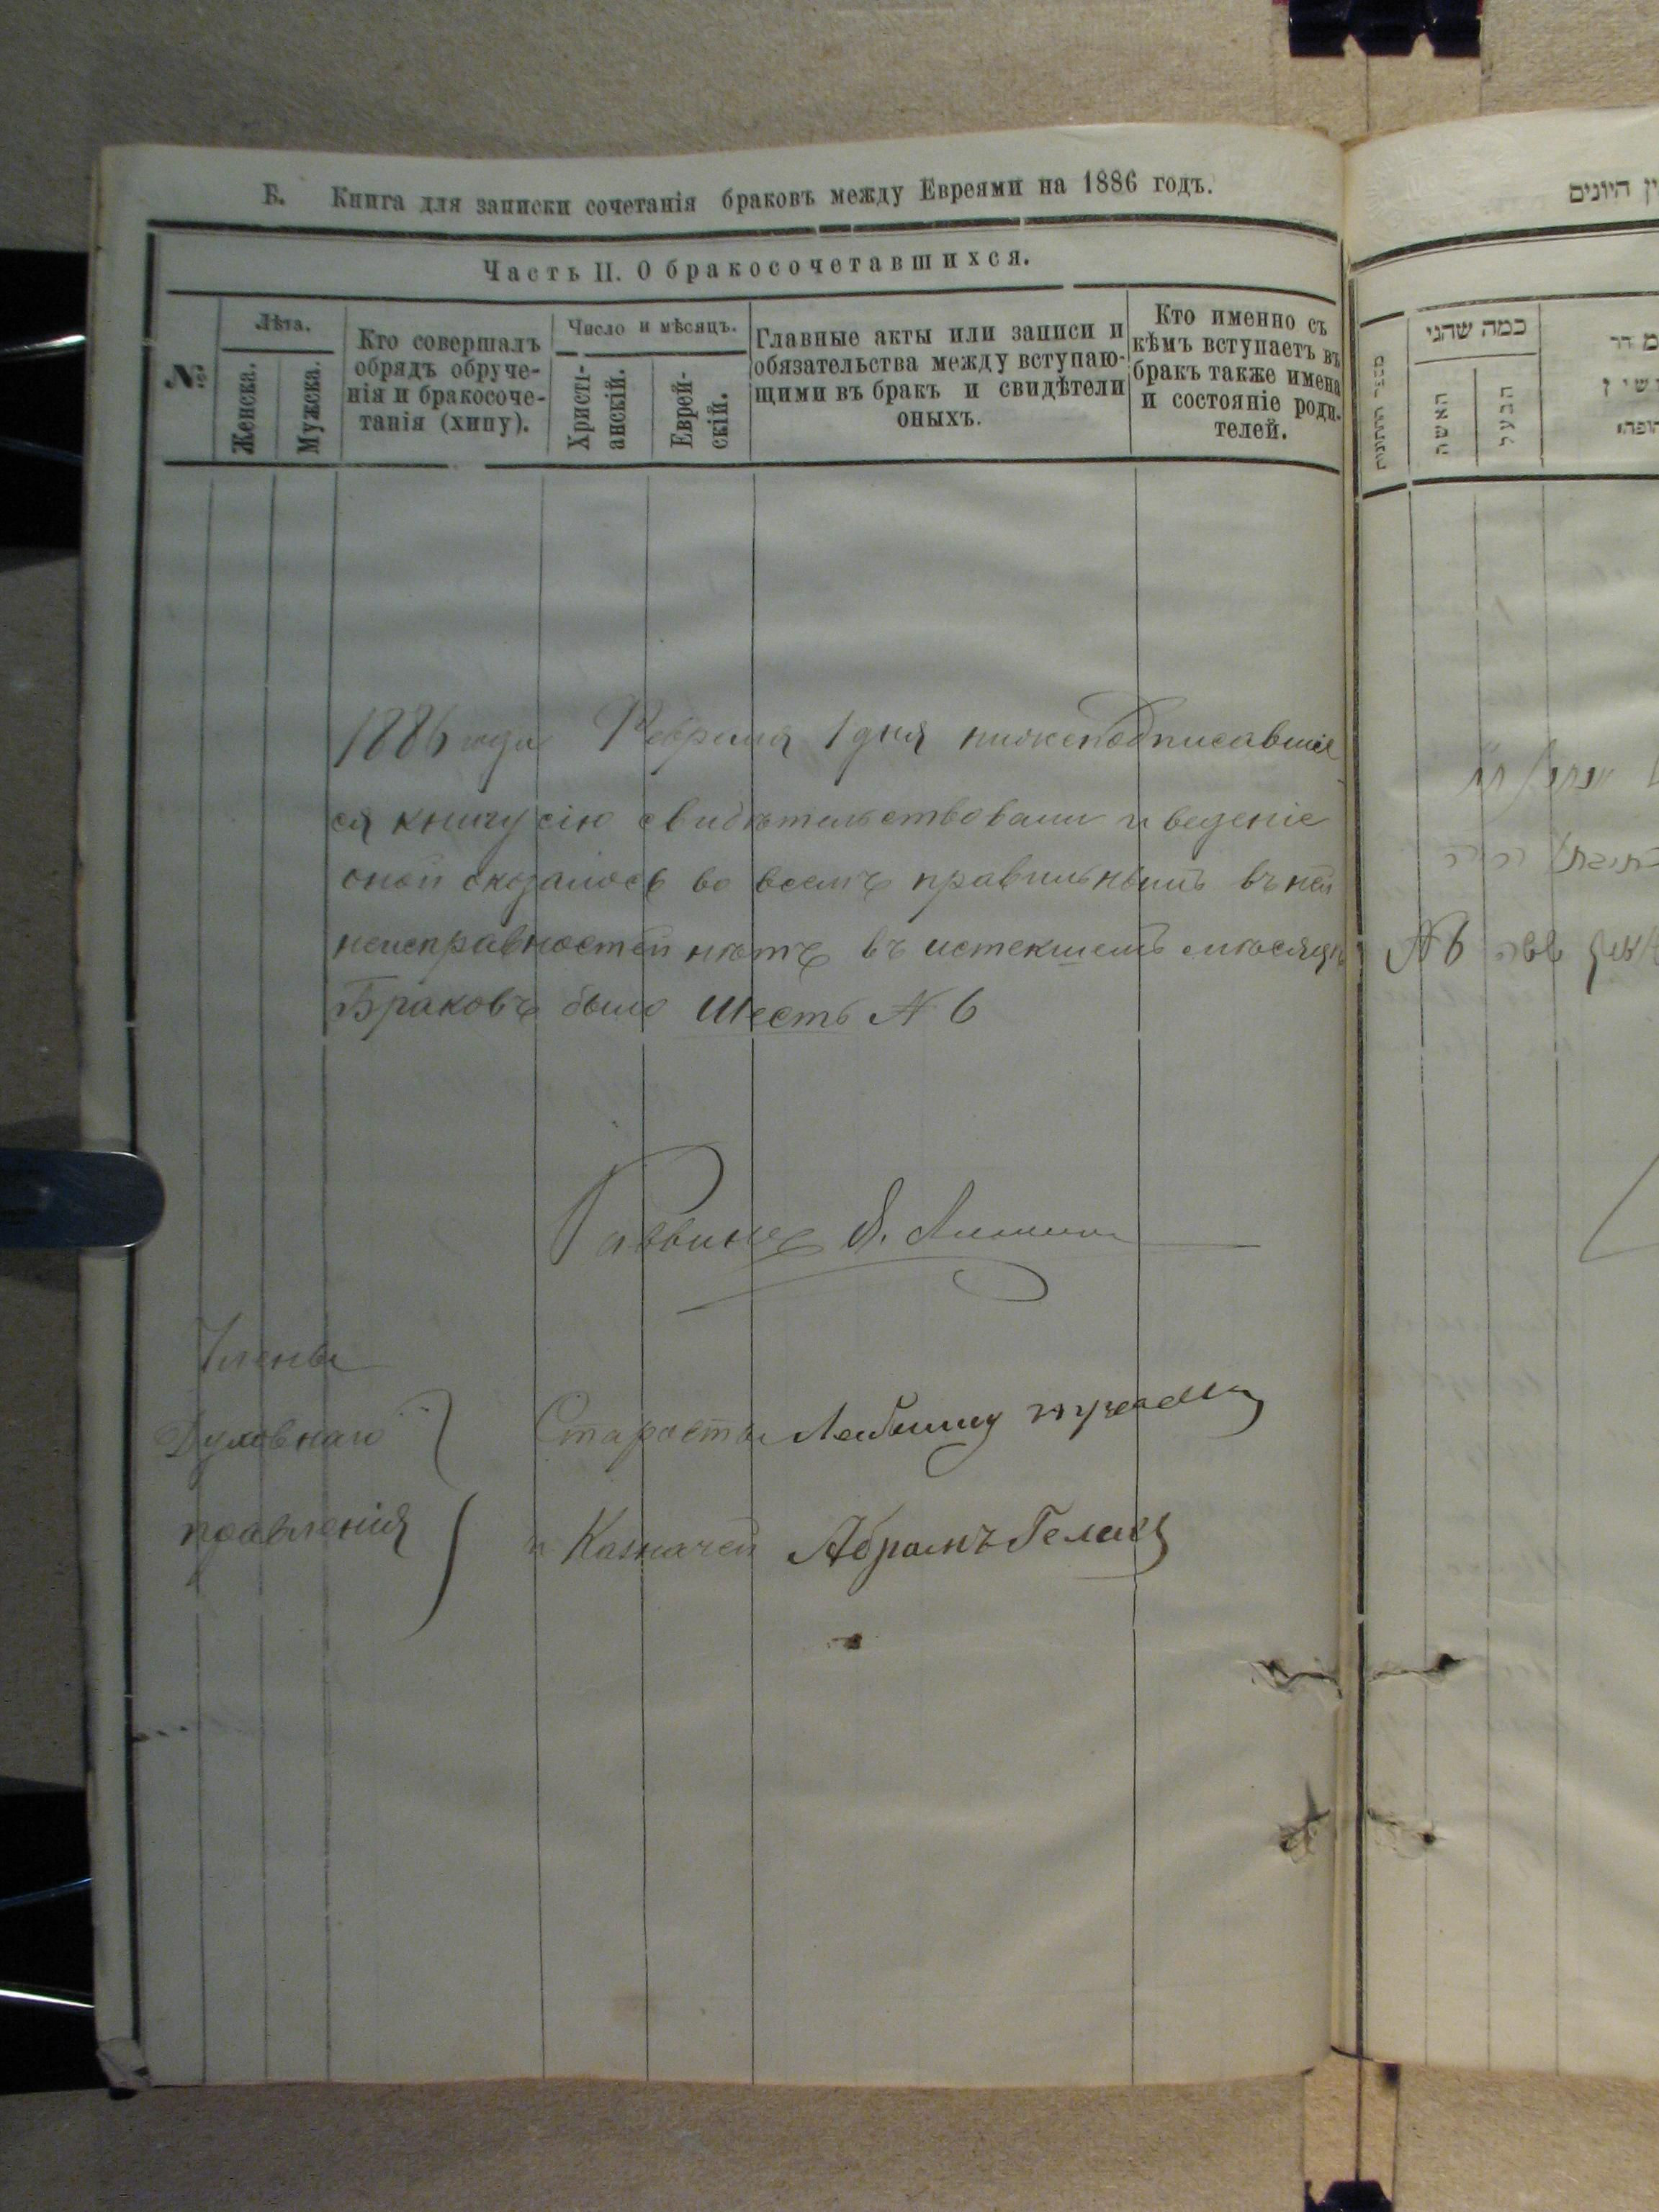 Б. Книга для записки сочетанія браковъ между Евреями на 1886 годъ.
Часть II. О бракосочетавшихся.
№
Лѣта.
Женска.
Мужска.
Кто совершалъ
обрядъ обруче-
нія и бракосоче-
танія (хипу).
Число и мѣсяцъ.
Христі-
анскій.
Еврей-
скій.
Главные акты или записи и
обязательства между вступаю-
щими въ бракъ и свидѣтели
оныхъ.
Кто именно съ
кѣмъ вступаетъ въ
бракъ также имена
и состояніе роди-
телей.
1886 года Февраля 1 дня нижеподписавшіе
ся книгу сію свидѣтельствовали и веденіе
оной оказалось во всемъ правильнымъ въ ней
неисправностей нѣтъ въ истекшемъ мѣсяцѣ
Браковъ было Шесть № 6
Раввинъ
Члены
Духовнаго
правленія
Староста
и Казначей Абрамъ
היונים
כמה שהני
האשה
הבעל
№ 6